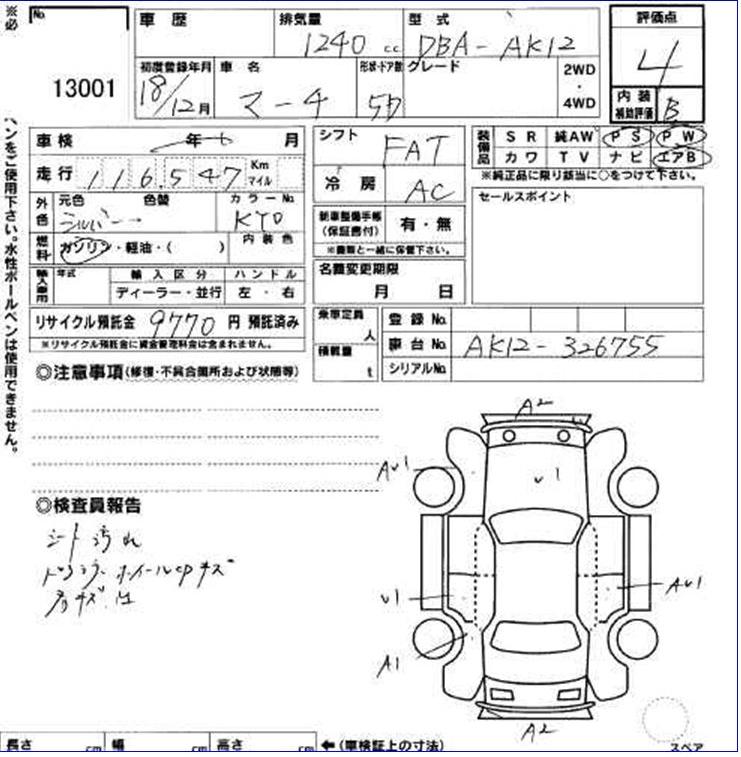 ※必
ペンをご使用下さい。水性ボールペンは使用できません。
No.
13001
車歴
排気量 1240 cc
型式 DBA-AK12
評価点 4
初度登録年月 18/12月
車名 マーチ
形状・ドア数 5D
グレード
2WD・4WD
内装補助評価 B
車検 年 月
シフト FAT
装備品 SR 純AW PS PW
カワ TV ナビ エアB
※純正品に限り該当に○をつけて下さい。
走行 116,547 Km マイル
冷房 AC
セールスポイント
外色 元色 シルバー 色替 カラーNo. KY0
新車整備手帳(保証書付) 有・無
※書類と一緒に保管下さい。
燃料 ガソリン・軽油・( ) 内装色
輸入車用 年式 輸入区分 ハンドル
ディーラー・並行 左・右
名義変更期限
月 日
リサイクル預託金 9770 円 預託済み
※リサイクル預託金に資金管理料金は含まれません。
乗車定員 人
積載量 t
登録No.
車台No. AK12-326755
シリアルNo.
◎注意事項(修復・不具合箇所および状態等)
A2
AU1
U1
◎検査員報告
シート汚れ
キズ
U1
AU1
A1
A2
長さ cm 幅 cm 高さ cm ←(車検証上の寸法)
スペア